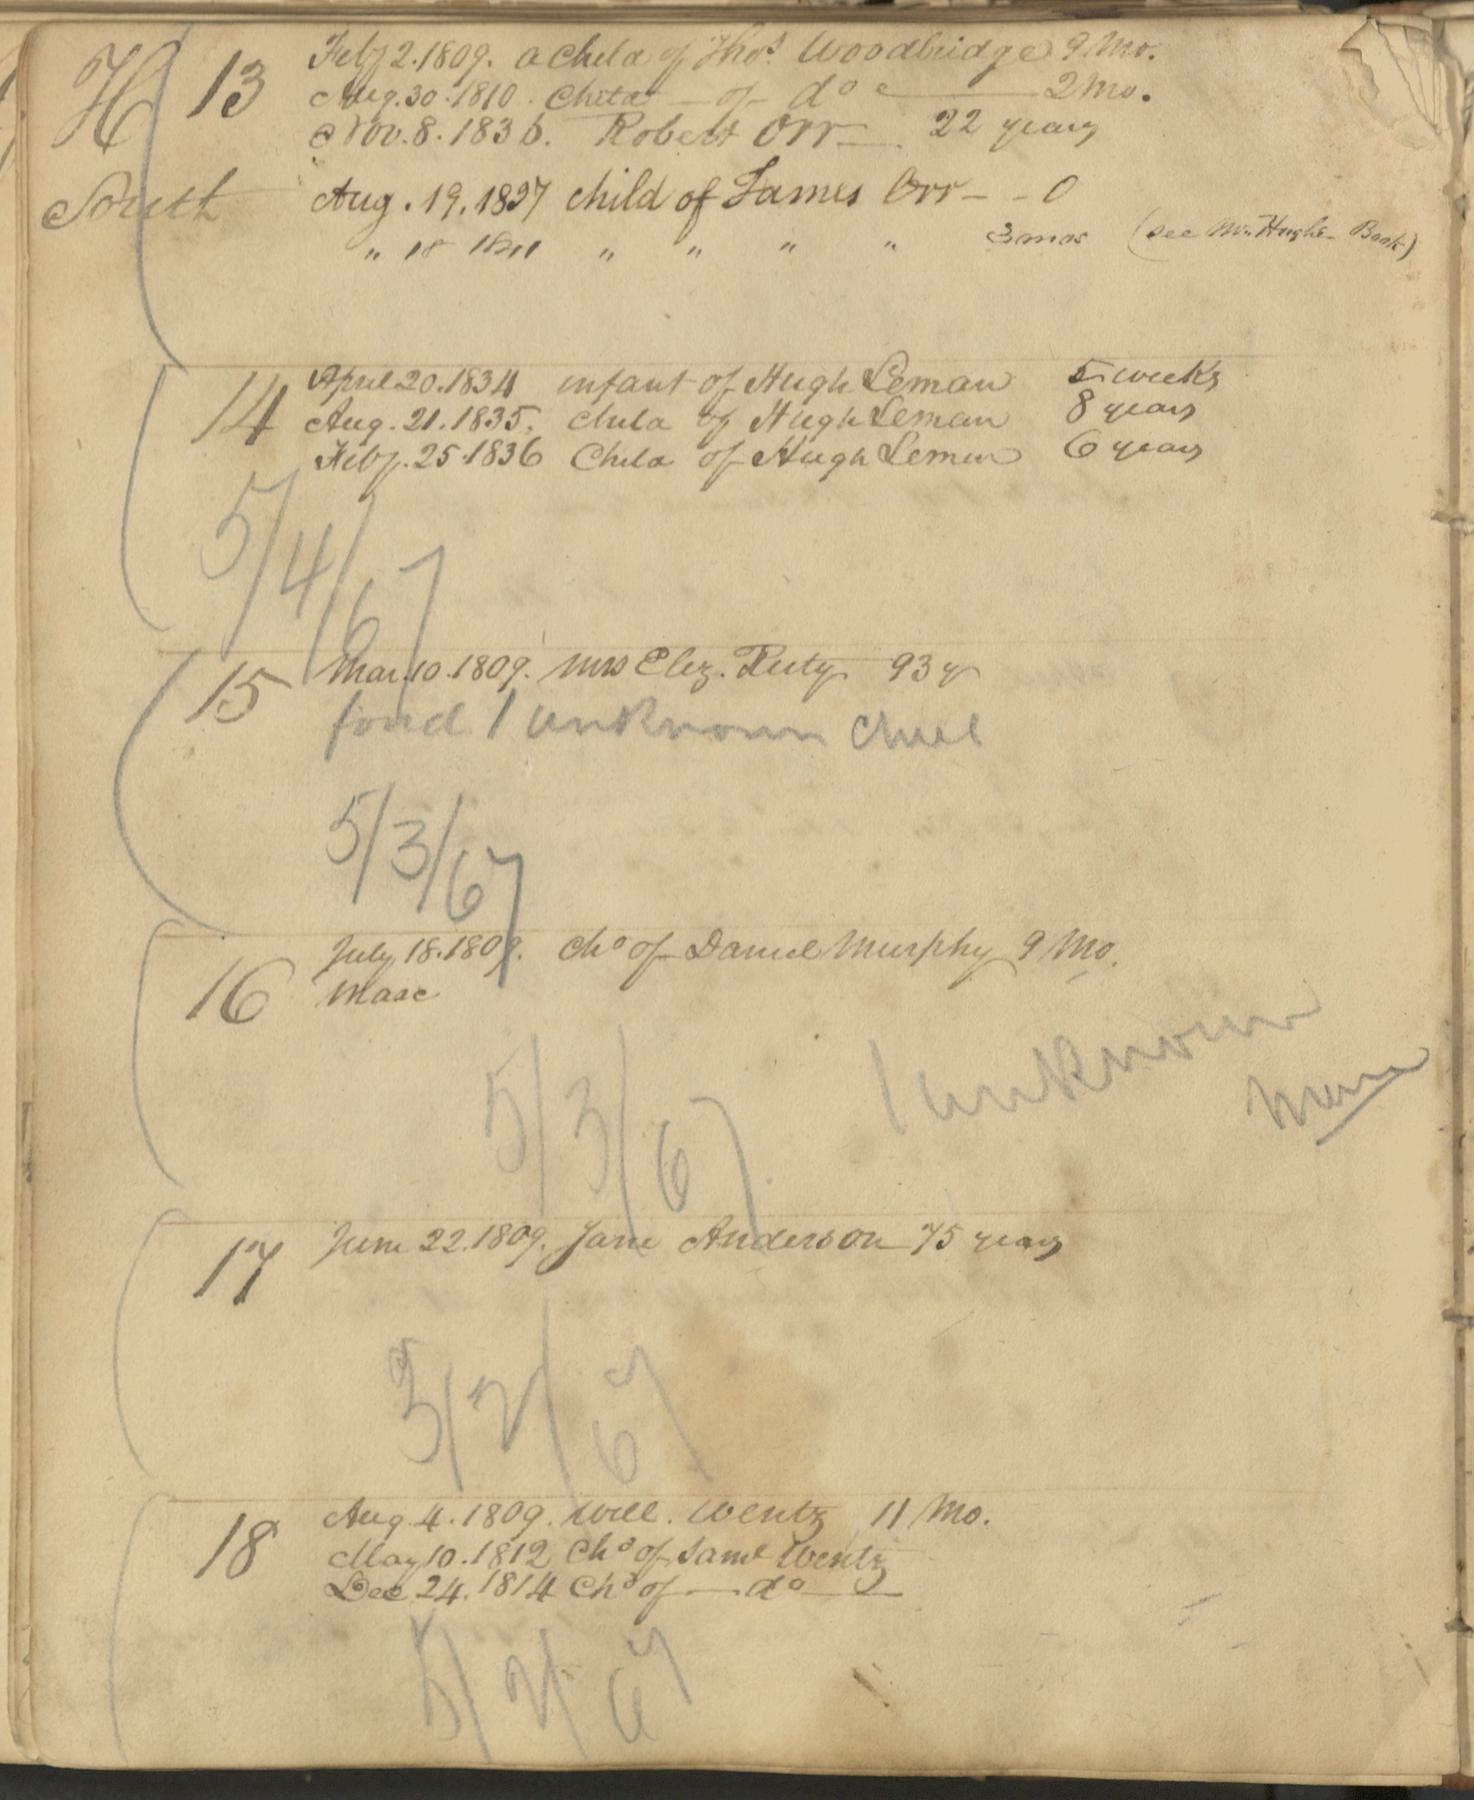 H 13 Feby 2. 1809. a child of Thos. Woodbridge 9 Mo.
Aug. 30. 1810. Child — of — do — 2 mo.
Nov. 8. 1836. Robert Orr — 22 years
South Aug. 19. 1837 child of James Orr - - 0
" 18 1841 " " " " 3 mos (see Mr. Hughs Book)
14 April 20. 1834 infant of Hugh Leman 5 weeks
Aug. 21. 1835. child of Hugh Leman 8 years
Feby. 25. 1836 Child of Hugh Leman 6 years
5/4/67
15 Mar. 10. 1809. Mrs Eliz. 93 y
fond 1 unknown chil
5/3/67
16 July 18. 1809. Chd of Daniel Murphy 9 Mo.
5/3/67 1 unknown
17 June 22. 1809. Jane Anderson 75 years
5/2/67
18 Aug. 4. 1809. Will. Wentz 11 Mo.
May 10. 1812 Chd of Saml Wentz
Dec. 24. 1814 Chd of — do —
5/2/67